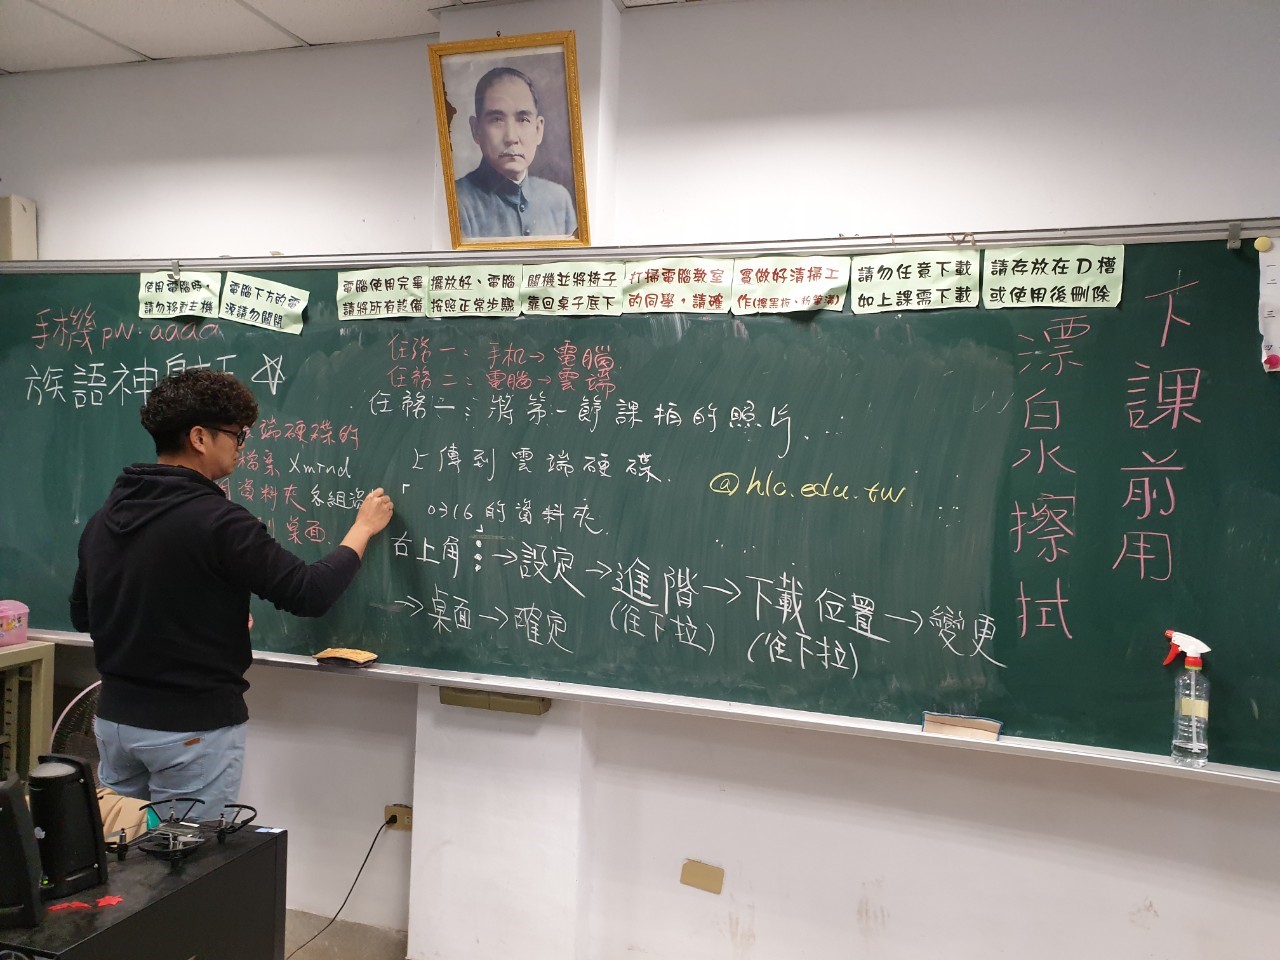 使用電腦時，
請勿移動主機
電腦下方的電
源請勿關閉
電腦使用完畢
請將所有設備
擺放好、電腦
按照正常步驟
關機並將椅子
靠回桌子底下
打掃電腦教室
的同學，請確
實做好清掃工
作(擦黑板、拆筆溝)
請勿任意下載
如上課需下載
請存放在D槽
或使用後刪除
手機 pw:aaaa
族語神
任務一：手机→電腦
任務二：電腦→雲端
任務二：將第一節課拍的照片
上傳到雲端硬碟.
「0316的資料夾
@hlc.edu.tw
端硬碟的
檔案 Xmind
資料夾 各組資
桌面.
右上角⋮→設定→進階→下載位置→變更
(往下拉)
(往下拉)
→桌面→確定
下課前用
漂白水擦拭